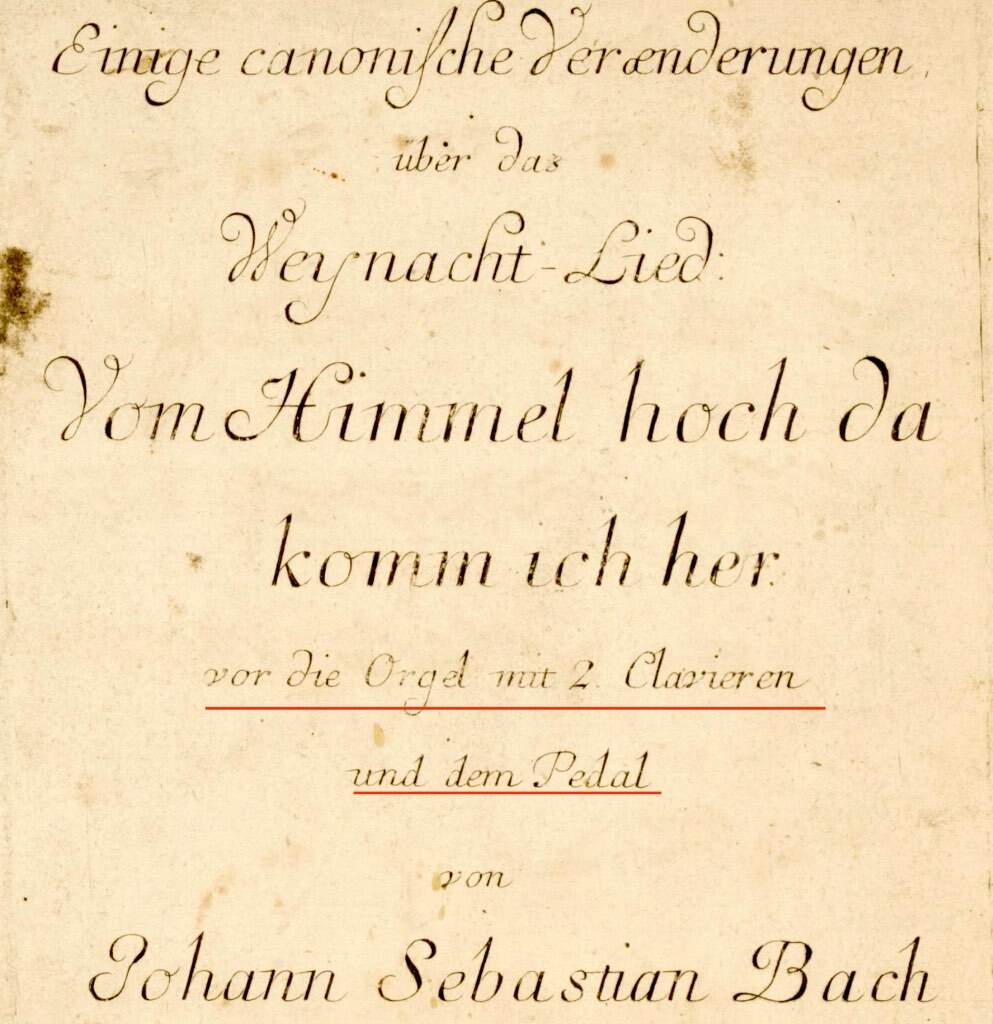 Einige canonische Verænderungen,
über das
Weynacht-Lied:
Vom Himmel hoch da
komm ich her.
vor die Orgel mit 2. Clavieren
und dem Pedal
von
Johann Sebastian Bach